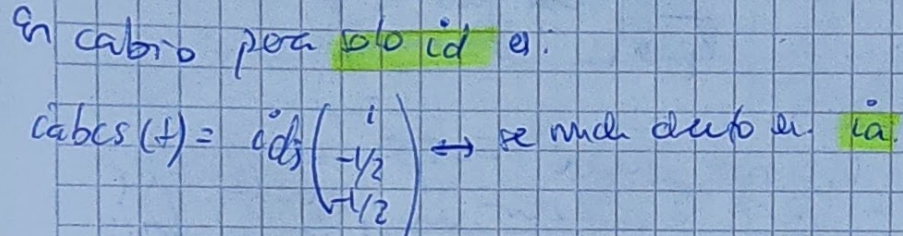 En cabio para solo id es:
iabcs(t) = ids (1 -1/2 -1/2) ↔ se mide directo en ia.